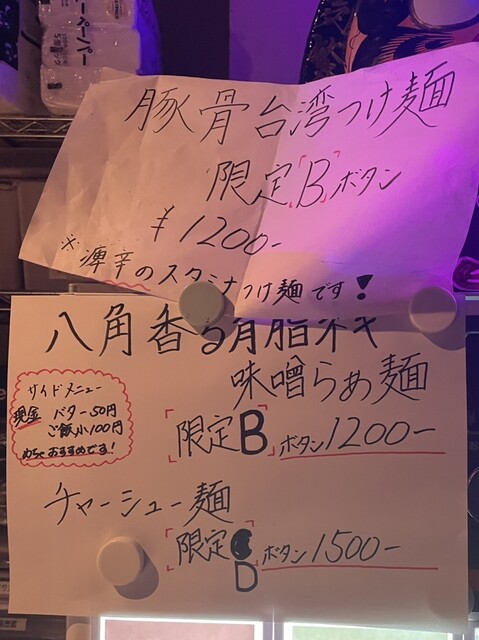 ーペーパー
豚骨台湾つけ麺
限定Bボタン
¥1200-
※痺辛のスタミナつけ麺です!
八角香る背脂ネギ
味噌らぁ麺
サイドメニュー
現金 バター50円
ご飯小100円
めちゃおすすめです!
限定Bボタン1200-
チャーシュー麺
限定
D
ボタン1500-